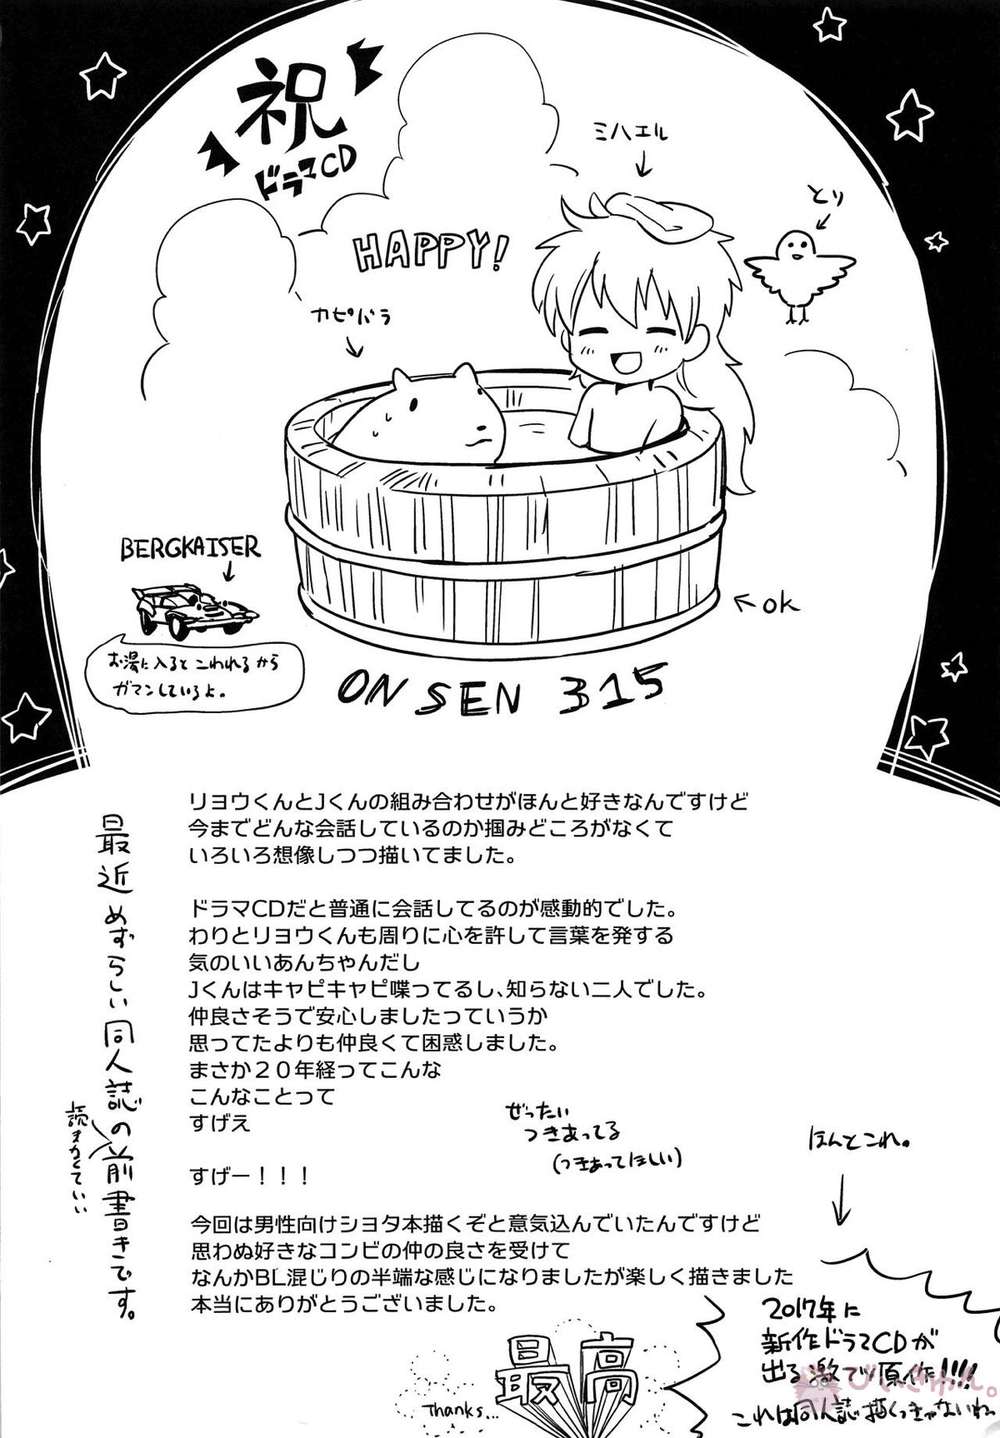 祝
ドラマCD
HAPPY!
ミハエル
とり
カピバラ
BERGKAISER
お湯に入るとこわれるから
ガマンしているよ。
OK
ONSEN 315
最近めずらしい同人誌の前書きです。
読まなくていい
リョウくんとJくんの組み合わせがほんと好きなんですけど
今までどんな会話しているのか掴みどころがなくて
いろいろ想像しつつ描いてました。
ドラマCDだと普通に会話してるのが感動的でした。
わりとリョウくんも周りに心を許して言葉を発する
気のいいあんちゃんだし
Jくんはキャピキャピ喋ってるし、知らない二人でした。
仲良さそうで安心しましたっていうか
思ってたよりも仲良くて困惑しました。
まさか20年経ってこんな
こんなことって
すげえ
ぜったい
つきあってる
(つきあってほしい)
すげー！！！
今回は男性向けショタ本描くぞと意気込んでいたんですけど
思わぬ好きなコンビの仲の良さを受けて
なんかBL混じりの半端な感じになりましたが楽しく描きました
本当にありがとうございました。
ほんとこれ。
2017年に
新作ドラマCDが
出る激ヤバ原作!!!!
これは同人誌描くっきゃないわ〜
Thanks...
最高